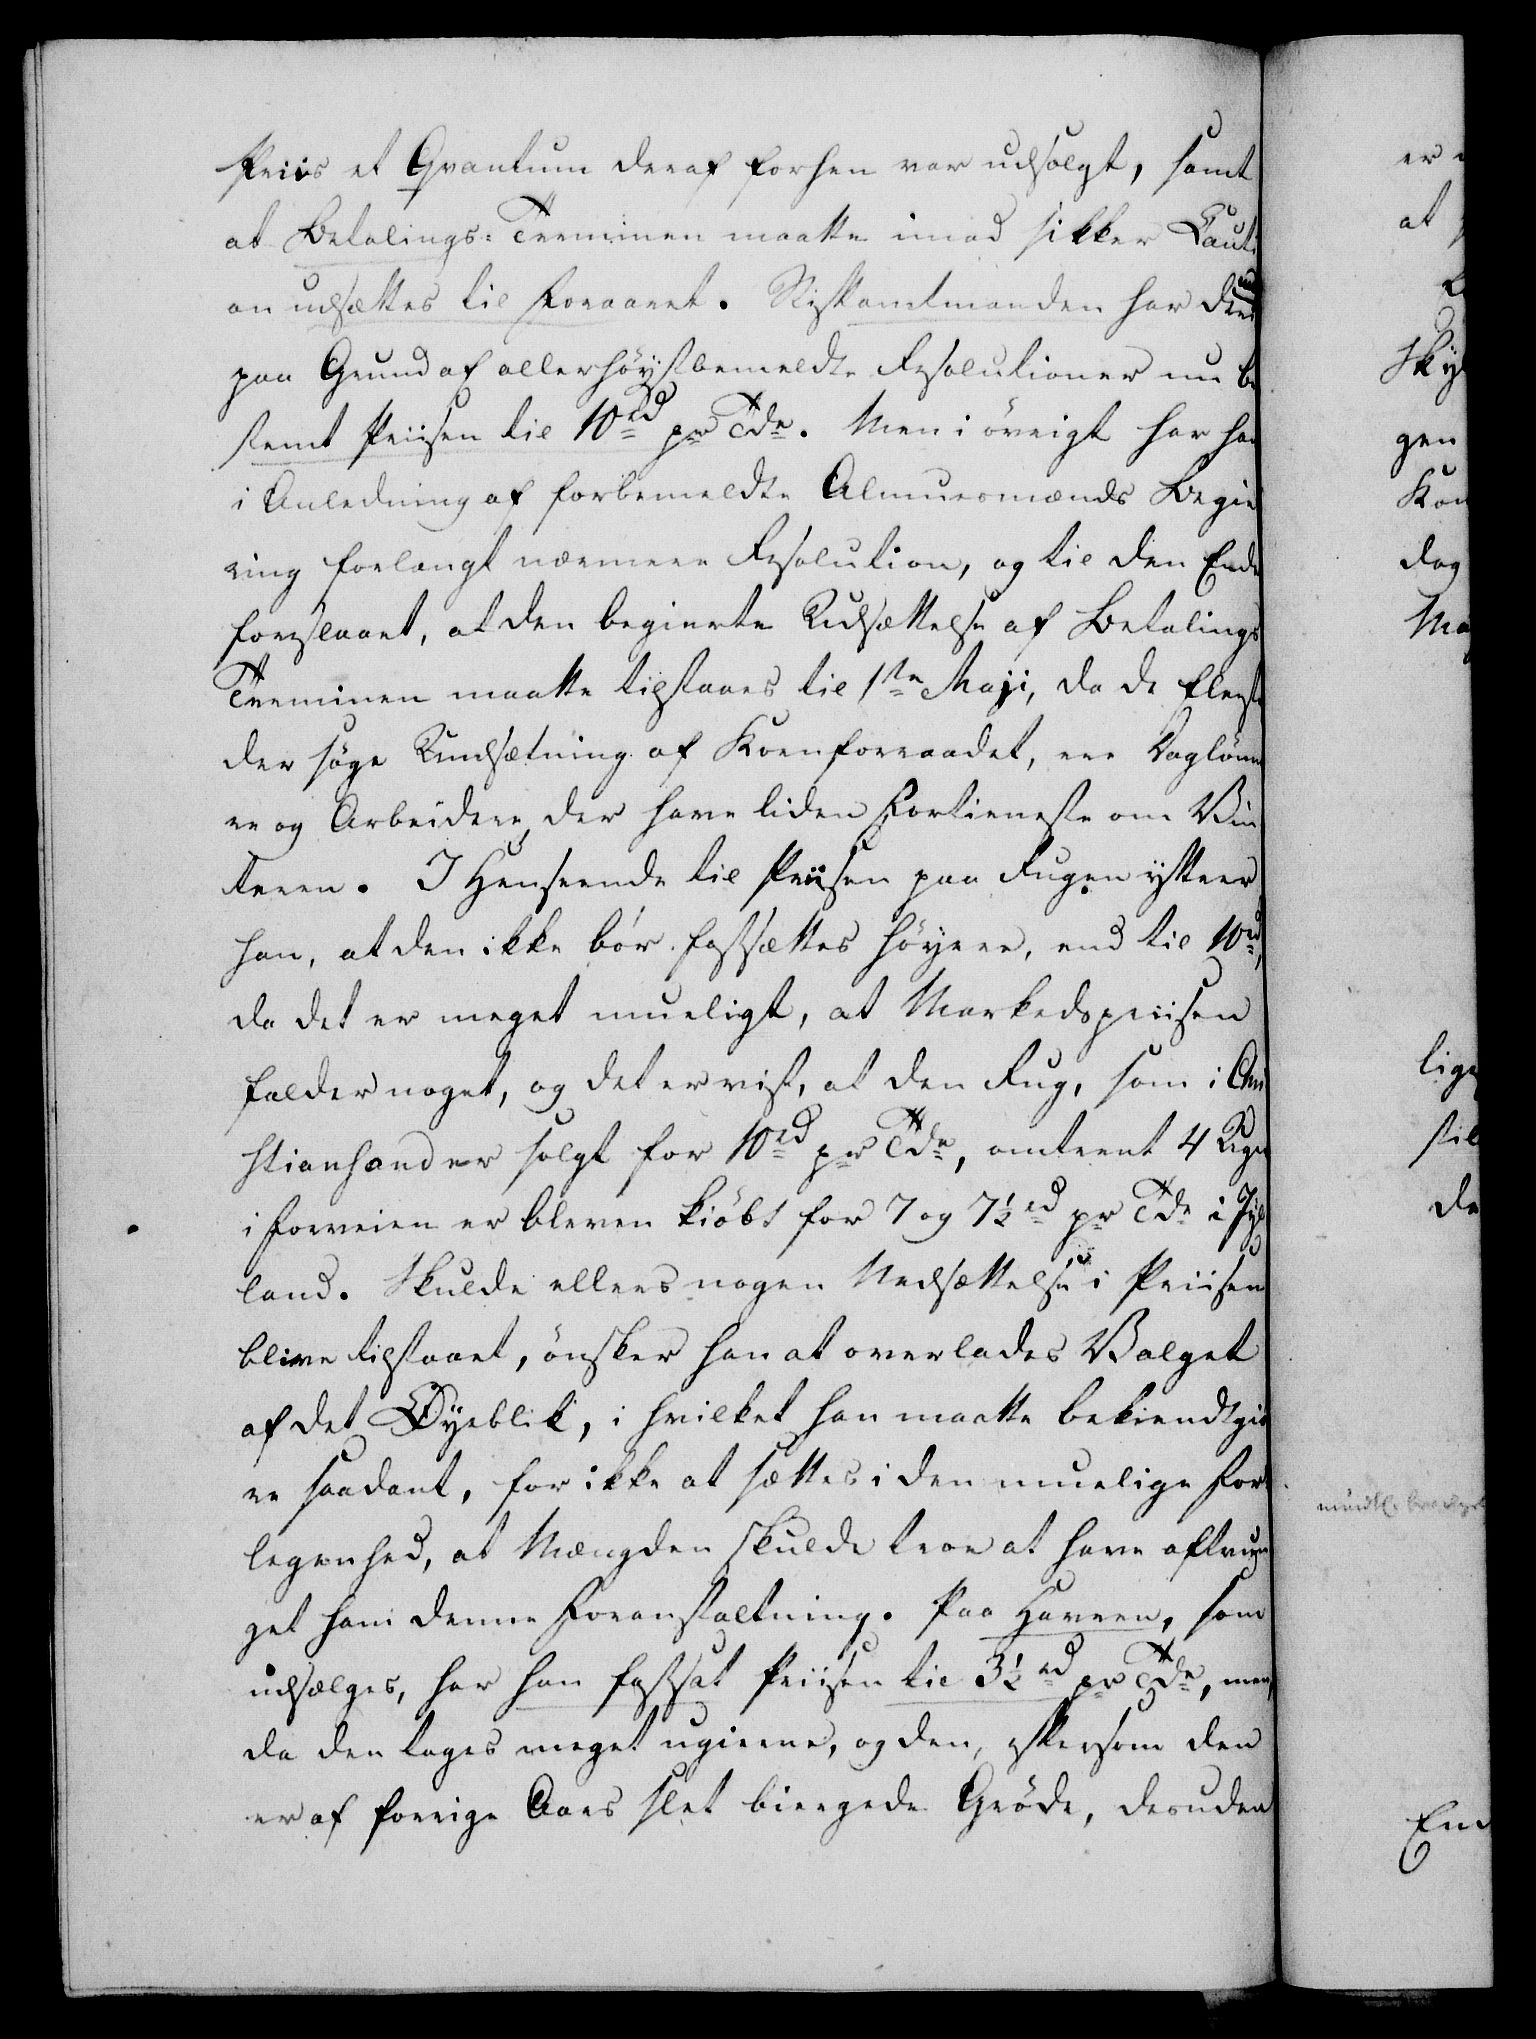 Priis et Qvantum deraf forhen var udsolgt, samt
at Betalings-Terminen maatte imod sikker Cauti
on udsættes til Foraaret. Stiftamtmanden har
paa Grund af allerhöystbemeldte Resolutioner nu be
stemt Priisen til 10 rd pr Tde. Men i övrigt har han
i Anledning af forbemeldte Almuesmænds Begie
ring forlangt nærmere Resolution, og til den Ende
foreslaaet, at den begierte Udsættelse af Betalings
Terminen maatte tilstaaes til 1ste Maji, da de fleeste
der söge Undsætning af Kornforraadet, ere Daglönn
re og Arbeidere, der have liden Fortieneste om Vin
teren. I Henseende til Priisen paa Rugen yttrer
han, at den ikke bör fastsættes höyere, end til 10 rd,
da det er meget mueligt, at Markedspriisen
falder noget, og det er vist, at den Rug, som i Chri
stiansand er solgt for 10 rd pr Tde, omtrent 4 Uger
i Forveien er bleven kiöbt for 7 og 7½ rd pr Tde i Jyl
land. Skulde ellers nogen Nedsættelse i Priisen
blive tilstaaet, önsker han at overlades Valget
af det Öyeblik, i hvilket han maatte bekiendtgiö
re saadant, for ikke at sættes i den muelige For
legenhed, at Mængden skulde troe at have aftvun
get ham denne Foranstaltning. Paa Havren, som
udsælges, har han fastsat Priisen til 3½ rd pr Tde, men,
da den tages meget ugierne, og den, eftersom den
er af forrige Aars slet biergede Gröde, desuden